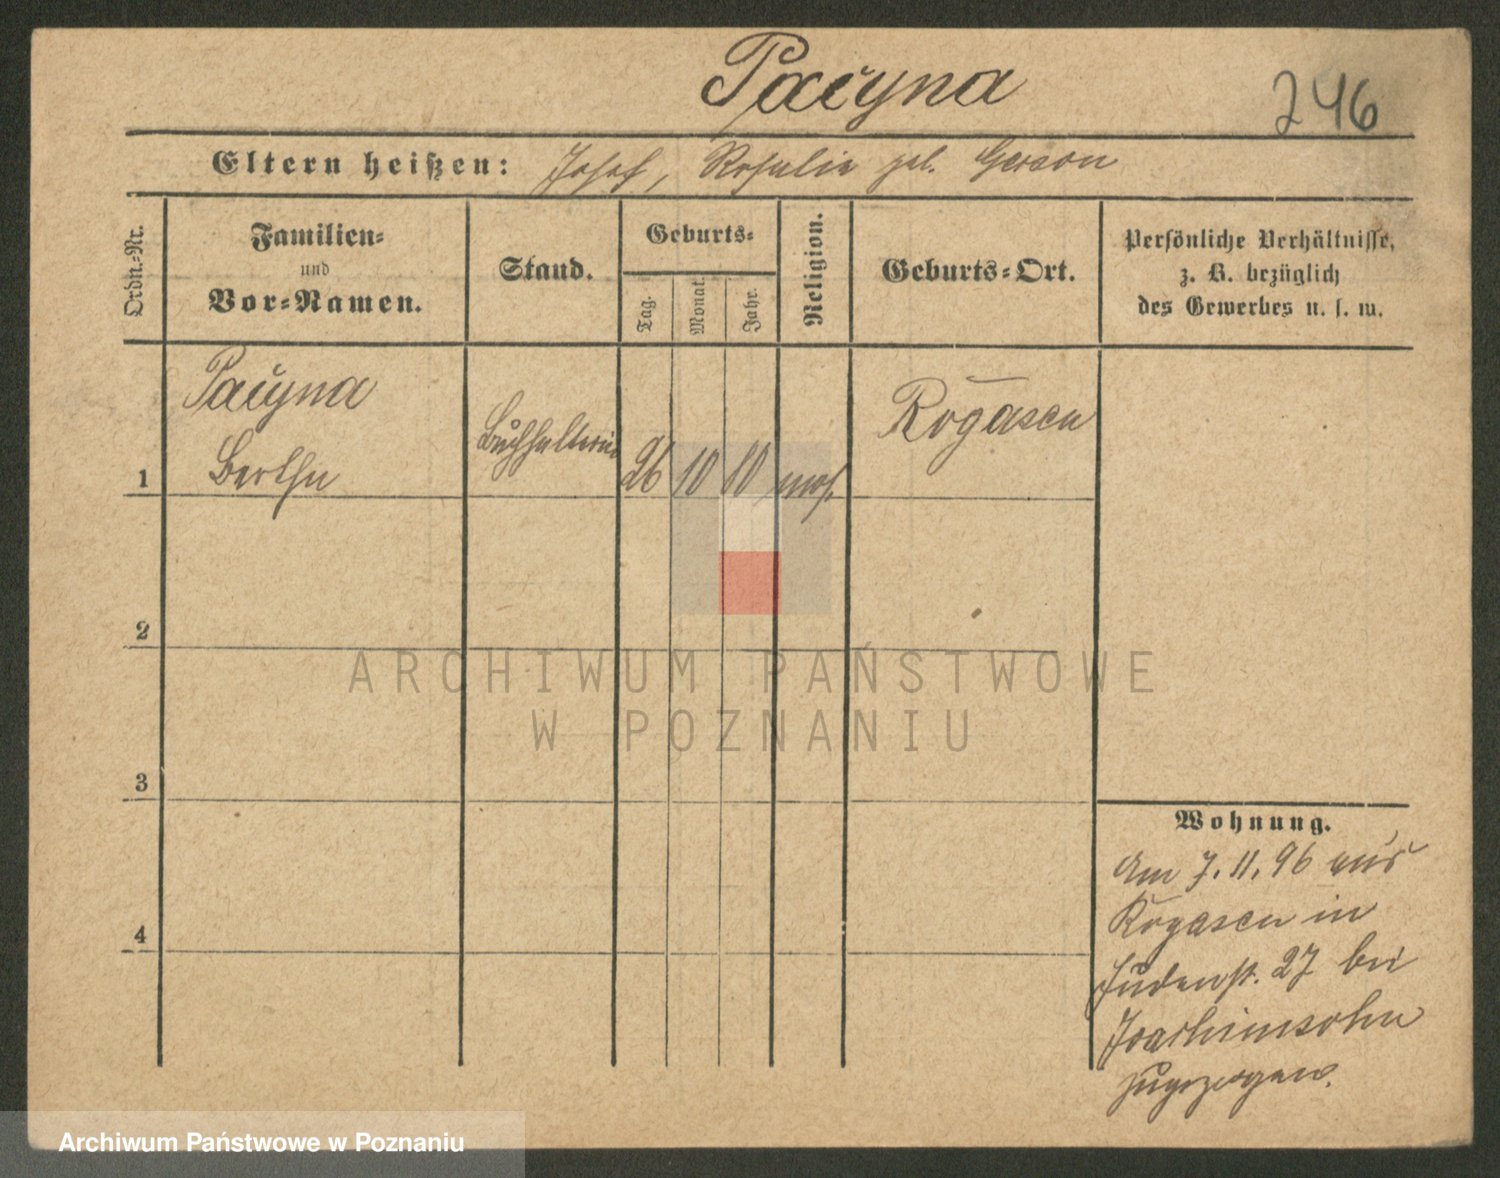 Pacyna
246
Eltern heißen: Josef, Rosalie geb. Gerson
Ordn.-Nr.
Familien-
und
Vor-Namen.
Stand.
Geburts-
Tag.
Monat.
Jahr.
Religion.
Geburts-Ort.
Persönliche Verhältnisse,
z. B. bezüglich
des Gewerbes u. s. w.
Pacyna
Bertha
1
Buchhalterin
26
10
80
mos.
Rogasen
2
3
4
Wohnung.
Am 7.11.96 aus
Rogasen in
Judenst. 27 bei
Joachimsohn
zugezogen.
ARCHIWUM PAŃSTWOWE
W POZNANIU
Archiwum Państwowe w Poznaniu